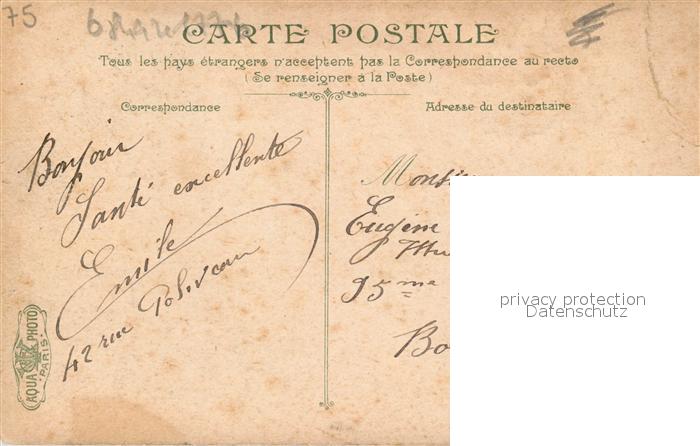 75
CARTE POSTALE
Tous les pays étrangers n'acceptent pas la Correspondance au recto
(Se renseigner à la Poste)
Correspondance
Adresse du destinataire
Bonjour
Santé excellente
Emile
42 rue Poliveau
AQUA PHOTO
PARIS.
Monsieur
Eugène
95me
Bo
privacy protection
Datenschutz